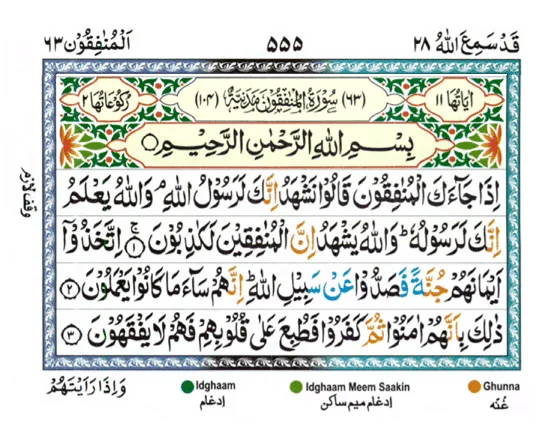 اَلْمُنٰفِقُوْن ٦٣
٥٥٥
قَدْ سَمِعَ اللّٰهُ ٢٨
اٰيَاتُهَا ١١
(٦٣) سُوْرَةُ الْمُنٰفِقُوْنَ مَدَنِيَّةٌ (١٠٤)
رُكُوْعَاتُهَا ٢
بِسْمِ اللّٰهِ الرَّحْمٰنِ الرَّحِيْمِ
اِذَا جَآءَكَ الْمُنٰفِقُوْنَ قَالُوْا نَشْهَدُ اِنَّكَ لَرَسُوْلُ اللّٰهِ ۘ وَاللّٰهُ يَعْلَمُ
اِنَّكَ لَرَسُوْلُهٗ ؕ وَاللّٰهُ يَشْهَدُ اِنَّ الْمُنٰفِقِيْنَ لَكٰذِبُوْنَ ۚ ١ اِتَّخَذُوْۤا
اَيْمَانَهُمْ جُنَّةً فَصَدُّوْا عَنْ سَبِيْلِ اللّٰهِ ؕ اِنَّهُمْ سَآءَ مَا كَانُوْا يَعْمَلُوْنَ ٢
ذٰلِكَ بِاَنَّهُمْ اٰمَنُوْا ثُمَّ كَفَرُوْا فَطُبِعَ عَلٰى قُلُوْبِهِمْ فَهُمْ لَا يَفْقَهُوْنَ ٣
وقف لازم
وَاِذَا رَاَيْتَهُمْ
Idghaam
ادغام
Idghaam Meem Saakin
ادغام میم ساکن
Ghunna
غنّه